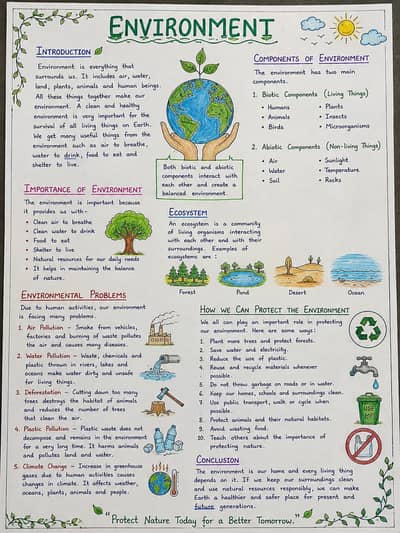 ENVIRONMENT
INTRODUCTION
Environment is everything that
surrounds us. It includes air, water,
land, plants, animals and human beings.
All these things together make our
environment. A clean and healthy
environment is very important for the
survival of all living things on Earth.
We get many useful things from the
environment such as air to breathe,
water to drink, food to eat and
shelter to live.
Both biotic and abiotic
components interact with
each other and create a
balanced environment.
COMPONENTS OF ENVIRONMENT
The environment has two main
components.
1. Biotic Components (Living Things)
• Humans • Plants
• Animals • Insects
• Birds • Microorganisms
2. Abiotic Components (Non-living Things)
• Air • Sunlight
• Water • Temperature
• Soil • Rocks
IMPORTANCE OF ENVIRONMENT
The environment is important because
it provides us with-
• Clean air to breathe
• Clean water to drink
• Food to eat
• Shelter to live
• Natural resources for our daily needs
• It helps in maintaining the balance
of nature.
ECOSYSTEM
An ecosystem is a community
of living organisms interacting
with each other and with their
surroundings. Examples of
ecosystems are :
Forest Pond Desert Ocean
ENVIRONMENTAL PROBLEMS
Due to human activities, our environment
is facing many problems.
1. Air Pollution – Smoke from vehicles,
factories and burning of waste pollutes
the air and causes many diseases.
2. Water Pollution – Waste, chemicals and
plastic thrown in rivers, lakes and
oceans make water dirty and unsafe
for living things.
3. Deforestation – Cutting down too many
trees destroys the habitat of animals
and reduces the number of trees
that clean the air.
4. Plastic Pollution – Plastic waste does not
decompose and remains in the environment
for a very long time. It harms animals
and pollutes land and water.
5. Climate Change – Increase in greenhouse
gases due to human activities causes
changes in climate. It affects weather,
oceans, plants, animals and people.
HOW WE CAN PROTECT THE ENVIRONMENT
We all can play an important role in protecting
our environment. Here are some ways:
1. Plant more trees and protect forests.
2. Save water and electricity.
3. Reduce the use of plastic.
4. Reuse and recycle materials whenever
possible.
5. Do not throw garbage on roads or in water.
6. Keep our homes, schools and surroundings clean.
7. Use public transport, walk or cycle when
possible.
8. Protect animals and their natural habitats.
9. Avoid wasting food.
10. Teach others about the importance of
protecting nature.
CONCLUSION
The environment is our home and every living thing
depends on it. If we keep our surroundings clean
and use natural resources responsibly, we can make
Earth a healthier and safer place for present and
future generations.
"Protect Nature Today for a Better Tomorrow."